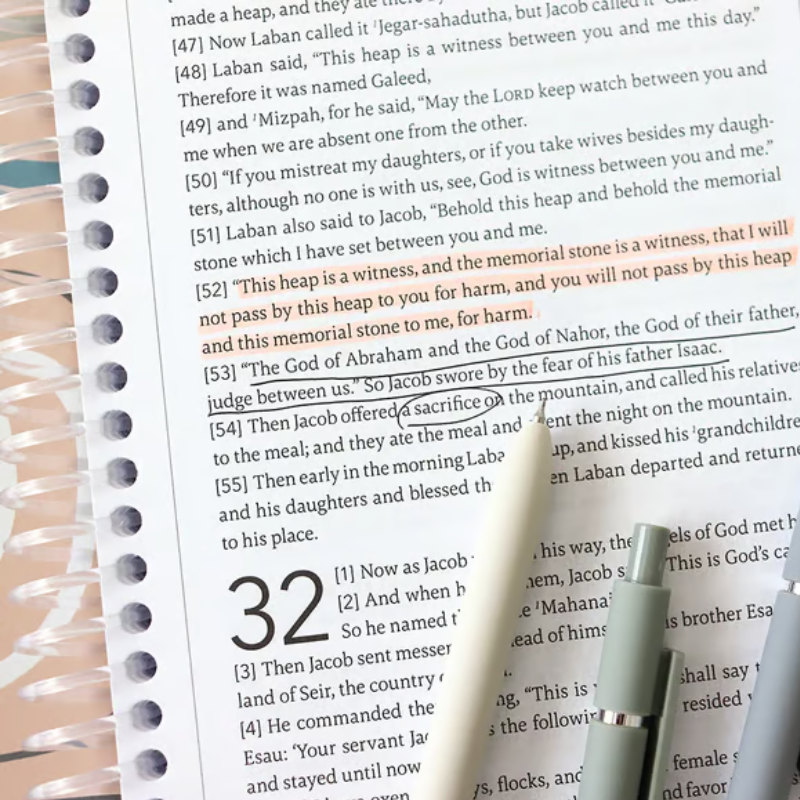 made a heap, and they ate
[47] Now Laban called it ˡJegar-sahadutha, but Jacob called it
[48] Laban said, “This heap is a witness between you and me this day.”
Therefore it was named Galeed,
[49] and ˡMizpah, for he said, “May the LORD keep watch between you and
me when we are absent one from the other.
[50] “If you mistreat my daughters, or if you take wives besides my daugh-
ters, although no one is with us, see, God is witness between you and me.”
[51] Laban also said to Jacob, “Behold this heap and behold the memorial
stone which I have set between you and me.
[52] “This heap is a witness, and the memorial stone is a witness, that I will
not pass by this heap to you for harm, and you will not pass by this heap
and this memorial stone to me, for harm.
[53] “The God of Abraham and the God of Nahor, the God of their father,
judge between us.” So Jacob swore by the fear of his father Isaac.
[54] Then Jacob offered a sacrifice on the mountain, and called his
to the meal; and they ate the meal and the night on the mountain.
[55] Then early in the morning up, and kissed his ˡ
and his daughters and blessed Laban departed and
to his place.
32
[1] Now as Jacob his way, of God met
[2] And when Jacob This is God’s
So he named ˡ
[3] Then Jacob sent brother
land of Seir, the country
[4] He commanded the “This is shall say
Esau: ‘Your servant the resided
and stayed until now
flocks, and female
favor